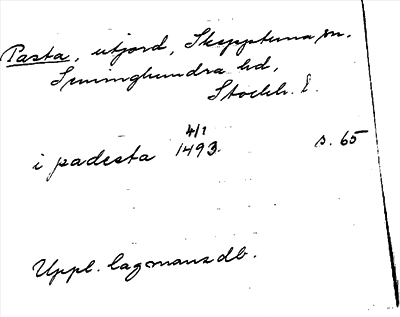 Pasta, utjord, Skepptuna sn.
Seminghundra hd,
Stockh. l.
i padesta 4/1 1493. s. 65
Uppl. lagmansdb.